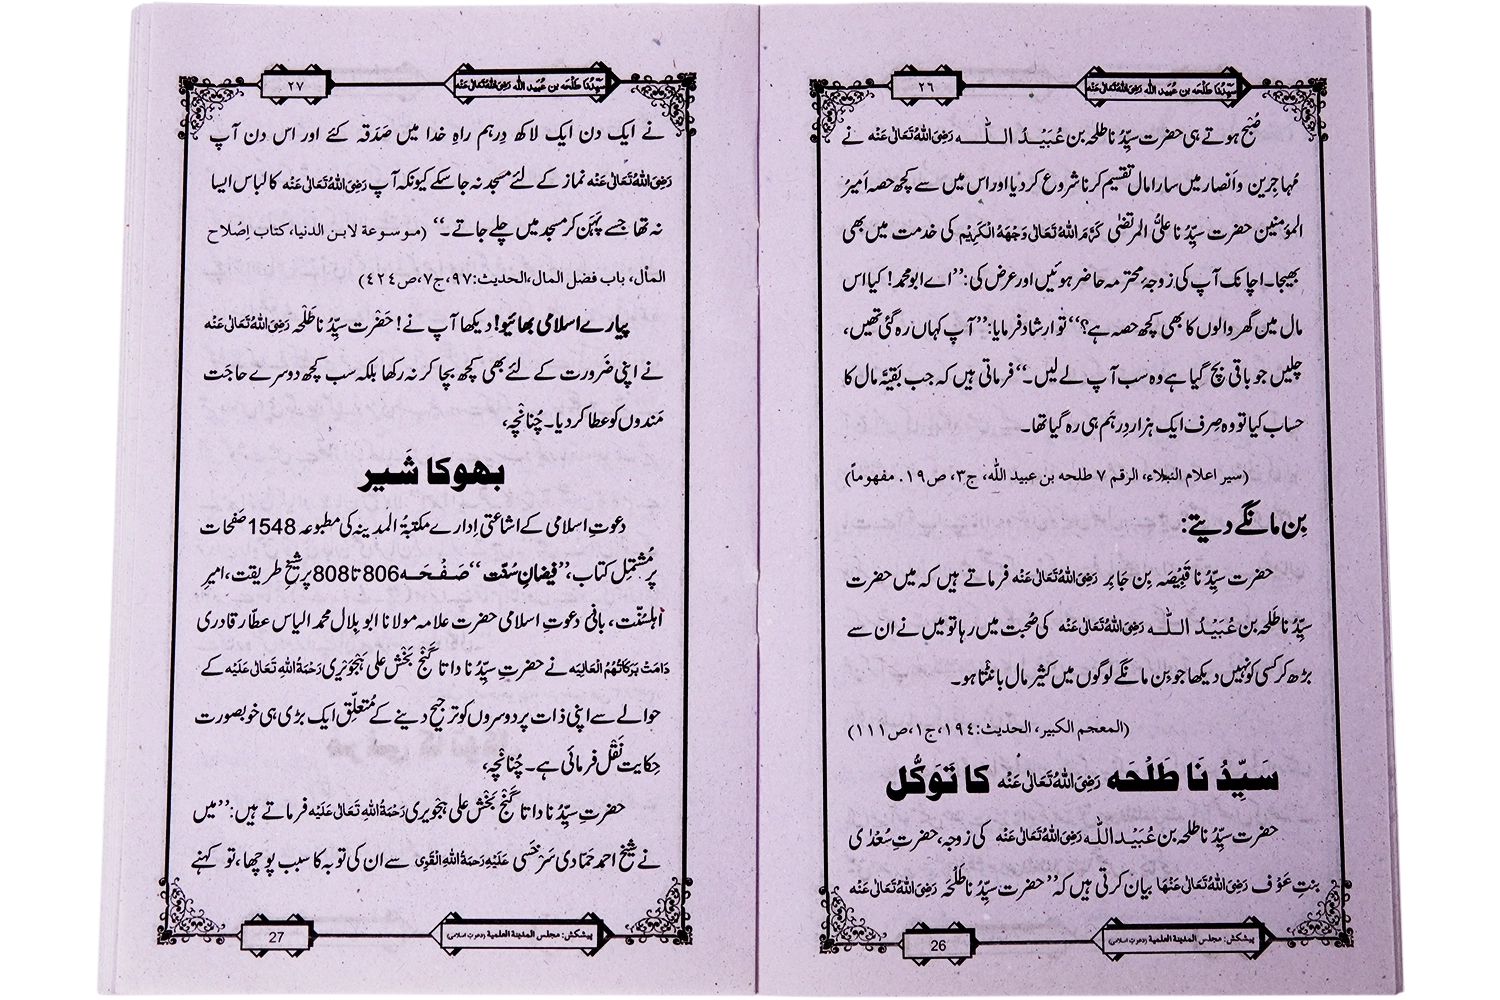 سیِّدُنا طَلْحَہ بن عُبَید اللہ رَضِیَ اللہُ تَعَالٰی عَنْہ
٢٦
صُبْح ہوتے ہی حضرت سیِّدُنا طلحہ بن عُبَیْدُ اللّٰہ رَضِیَ اللہُ تَعَالٰی عَنْہ نے
مُہاجرین واَنصار میں سارا مال تقسیم کرنا شروع کردیا اور اس میں سے کچھ حصہ امیرُ
المؤمنین حضرت سیِّدُنا علیُّ المرتضٰی کَرَّمَ اللہُ تَعَالٰی وَجْہَہُ الْکَرِیْم کی خدمت میں بھی
بھیجا۔ اچانک آپ کی زوجۂ محترمہ حاضر ہوئیں اور عرض کی: ”اے ابو محمد! کیا اس
مال میں گھر والوں کا بھی کچھ حصہ ہے؟“ تو ارشاد فرمایا: ”آپ کہاں رہ گئی تھیں،
چلیں جو باقی بچ گیا ہے وہ سب آپ لے لیں۔“ فرماتی ہیں کہ جب بَقِیَّہ مال کا
حساب کیا تو وہ صِرف ایک ہزار دِرہَم ہی رہ گیا تھا۔
(سیر اعلام النبلاء، الرقم ٧ طلحہ بن عبید اللّٰہ، ج٣، ص١٩۔ مفھوماً)
بِن مانگے دیتے:
حضرت سیِّدُنا قَبِیْصَہ بِن جَابِر رَضِیَ اللہُ تَعَالٰی عَنْہ فرماتے ہیں کہ میں حضرت
سیِّدُنا طَلحہ بن عُبَیْدُ اللّٰہ رَضِیَ اللہُ تَعَالٰی عَنْہ کی صُحبت میں رہا تو میں نے ان سے
بڑھ کر کسی کو نہیں دیکھا جو بِن مانگے لوگوں میں کثیر مال بانٹتا ہو۔
(المعجم الکبیر، الحدیث:١٩٤، ج١، ص١١١)
سَیِّدُنَا طَلْحَہ رَضِیَ اللہُ تَعَالٰی عَنْہ کا تَوَکُّل
حضرت سیِّدُنا طلحہ بن عُبَیْدُ اللّٰہ رَضِیَ اللہُ تَعَالٰی عَنْہ کی زوجہ، حضرت سُعْدٰی
بنتِ عَوْف رَضِیَ اللہُ تَعَالٰی عَنْہَا بیان کرتی ہیں کہ ”حضرت سیِّدُنا طَلْحَہ رَضِیَ اللہُ تَعَالٰی عَنْہ
پیشکش: مجلس المدینۃ العلمیۃ (دعوتِ اسلامی)
26
سیِّدُنا طَلْحَہ بن عُبَید اللہ رَضِیَ اللہُ تَعَالٰی عَنْہ
٢٧
نے ایک دن ایک لاکھ دِرہم راہِ خدا میں صَدَقہ کئے اور اس دن آپ
رَضِیَ اللہُ تَعَالٰی عَنْہ نماز کے لئے مسجد نہ جا سکے کیونکہ آپ رَضِیَ اللہُ تَعَالٰی عَنْہ کا لباس ایسا
نہ تھا جسے پَہَن کر مسجد میں چلے جاتے۔“ (موسوعۃ لابن الدنیا، کتاب اِصْلاح
المال، باب فضل المال، الحدیث:٩٧، ج٧، ص٤٢٤)
پیارے اسلامی بھائیو! دیکھا آپ نے! حَضْرت سیِّدُنا طَلْحَہ رَضِیَ اللہُ تَعَالٰی عَنْہ
نے اپنی ضَرورت کے لئے بھی کچھ بچا کر نہ رکھا بلکہ سب کچھ دوسرے حاجَت
مَندوں کو عطا کر دیا۔ چُنانْچِہ،
بھوکا شَیر
دعوتِ اسلامی کے اشاعَتی اِدارے مکتبۃُ المدینہ کی مطبوعہ 1548 صَفحات
پر مُشتمِل کتاب، ”فیضانِ سُنّت“ صَفْحَہ 806 تا 808 پر شیخِ طریقت، امیرِ
اَہلسُنّت، بانیٔ دعوتِ اسلامی حضرت علامہ مولانا ابو بِلال محمد الیاس عطّار قادری
دَامَتْ بَرَکَاتُہُمُ الْعَالِیَہ نے حضرتِ سیِّدُنا داتا گَنْج بَخْش علی ہَجْوَیری رَحْمَۃُ اللہِ تَعَالٰی عَلَیْہ کے
حوالے سے اپنی ذات پر دوسروں کو ترجیح دینے کے مُتَعَلِّق ایک بڑی ہی خوبصورت
حِکایت نَقْل فرمائی ہے۔ چُنانْچِہ،
حضرتِ سیِّدُنا داتا گَنْج بَخْش علی ہجویری رَحْمَۃُ اللہِ تَعَالٰی عَلَیْہ فرماتے ہیں: ”میں
نے شیخ احمد حَمّادی سَرْخَسی عَلَیْہِ رَحْمَۃُ اللہِ الْقَوِی سے ان کی توبہ کا سبب پوچھا، تو کہنے
پیشکش: مجلس المدینۃ العلمیۃ (دعوتِ اسلامی)
27